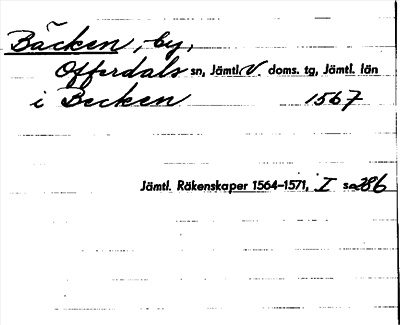 Bäcken, by,
Offerdals sn, Jämtl. V doms. tg, Jämtl. län
i Becken 1567
Jämtl. Räkenskaper 1564-1571, I s. 286